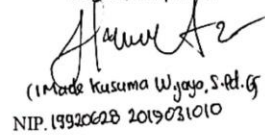 (I Made Kusuma Wijaya, S.Pd.G
NIP. 19920628 2019031010